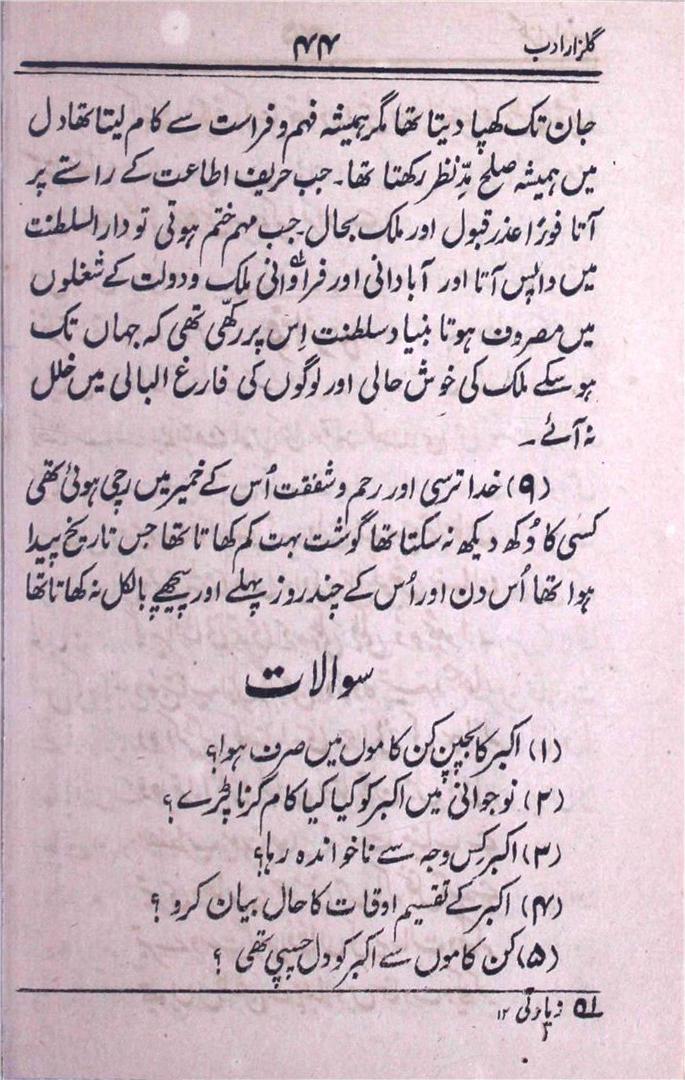 گلزار ادب
۴۴
جان تک کھپا دیتا تھا مگر ہمیشہ فہم و فراست سے کام لیتا تھا دل
میں ہمیشہ صلح مدِّ نظر رکھتا تھا۔ جب حریف اطاعت کے راستے پر
آتا فورًا عذر قبول اور ملک بحال۔ جب مہم ختم ہوتی تو دارالسلطنت
میں واپس آتا اور آبادانی اور فراوانی ملک و دولت کے شغلوں
میں مصروف ہوتا بنیاد سلطنت اِس پر رکھّی تھی کہ جہاں تک
ہو سکے ملک کی خوش حالی اور لوگوں کی فارغ البالی میں خلل
نہ آئے۔
(۹) خدا ترسی اور رحم و شفقت اُس کے خمیر میں رچی ہوئی تھی
کسی کا دُکھ دیکھ نہ سکتا تھا گوشت بہت کم کھاتا تھا جس تاریخ پیدا
ہوا تھا اُس دن اور اُس کے چند روز پہلے اور پیچھے بالکل نہ کھاتا تھا
سوالات
(۱) اکبر کا بچپن کن کاموں میں صرف ہوا؟
(۲) نوجوانی میں اکبر کو کیا کیا کام کرنا پڑے؟
(۳) اکبر کِس وجہ سے ناخواندہ رہا؟
(۴) اکبر کے تقسیم اوقات کا حال بیان کرو؟
(۵) کن کاموں سے اکبر کو دل چسپی تھی؟
۵۱ زیادتی ۱۲